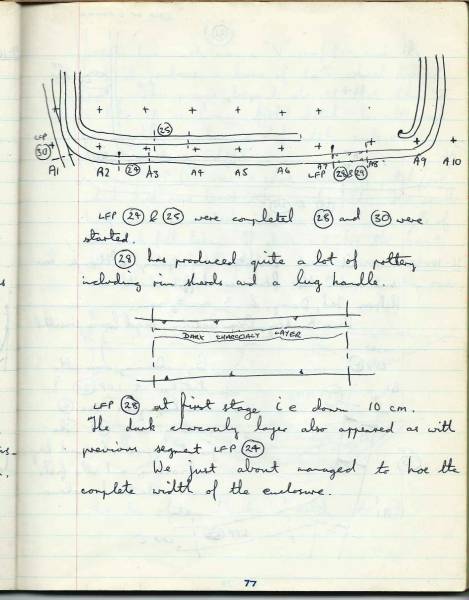 25
LFP
30
A1 A2 24 A3 A4 A5 A6 A7 LFP 28 & 29 A8 A9 A10
LFP 24 & 25 were completed 28 and 30 were
started.
28 has produced quite a lot of pottery
including rim sherds and a lug handle.
DARK CHARCOALY LAYER
LFP 28 at first stage i e down 10 cm.
The dark charcouly layer also appeared as with
previous segment LFP 24
We just about managed to hoe the
complete width of the enclosure.
77